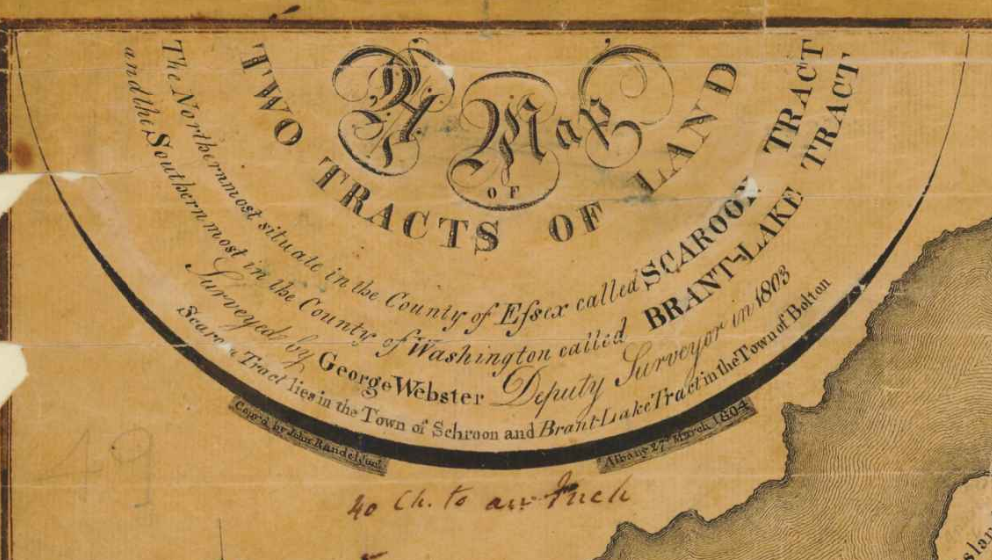 A Map
OF
TWO TRACTS OF LAND
The Northernmost situate in the County of Eſsex called SCAROON TRACT
and the Southernmost in the County of Washington called BRANT-LAKE TRACT
Surveyed by George Webster Deputy Surveyor in 1803
Scaroon Tract lies in the Town of Schroon and Brant-Lake Tract in the Town of Bolton
Copied by John Randel Jun.
Albany 27th March 1804
40 Ch. to an Inch
49